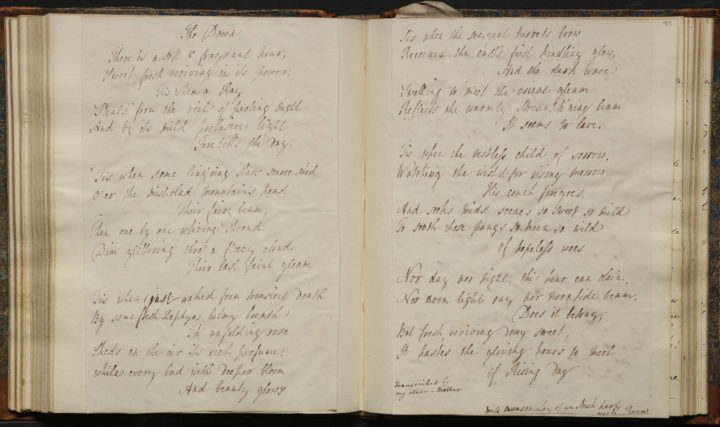 The Dawn
There is a soft & fragrant hour,
Sweet, fresh reviving in its power;
'Tis when a Ray
Steals from the veil of parting night
And by its mild prelusive light
Foretells the day.
'Tis when some lingering Stars scarce shed
O'er the mist-clad mountain's head
Their fairy beam,
Then one by one retiring shroud
Dim glittering thro' a fleecy cloud,
Their last faint gleam
Tis when just waked from transient death
By some fresh Zephyrs balmy breath,
The unfolding rose
Sheds on the air its rich perfume,
while every bud with deeper bloom
And beauty glows
Tis when the serpent turrets brow
the east's first kindling glow,
And the dark wave
Swelling to meet the orient gleam
Reflects the warmly strength'ning beam
It seems to lave.
Tis when the restless child of sorrow,
Watching the wish'd-for rising morrow
His couch foregoes,
And seeks midst scenes so sweet so mild
To sooth those pangs so keen so wild
Of hopeless woes
Nor day nor night, this hour can claim,
Nor moon light ray nor noontide beam,
Does it betray,
But fresh, reviving dewy sweet,
It hastes the glowing hours to meet
Of Rising Day
Transcribed by
my dear Mother
Miss of an Irish